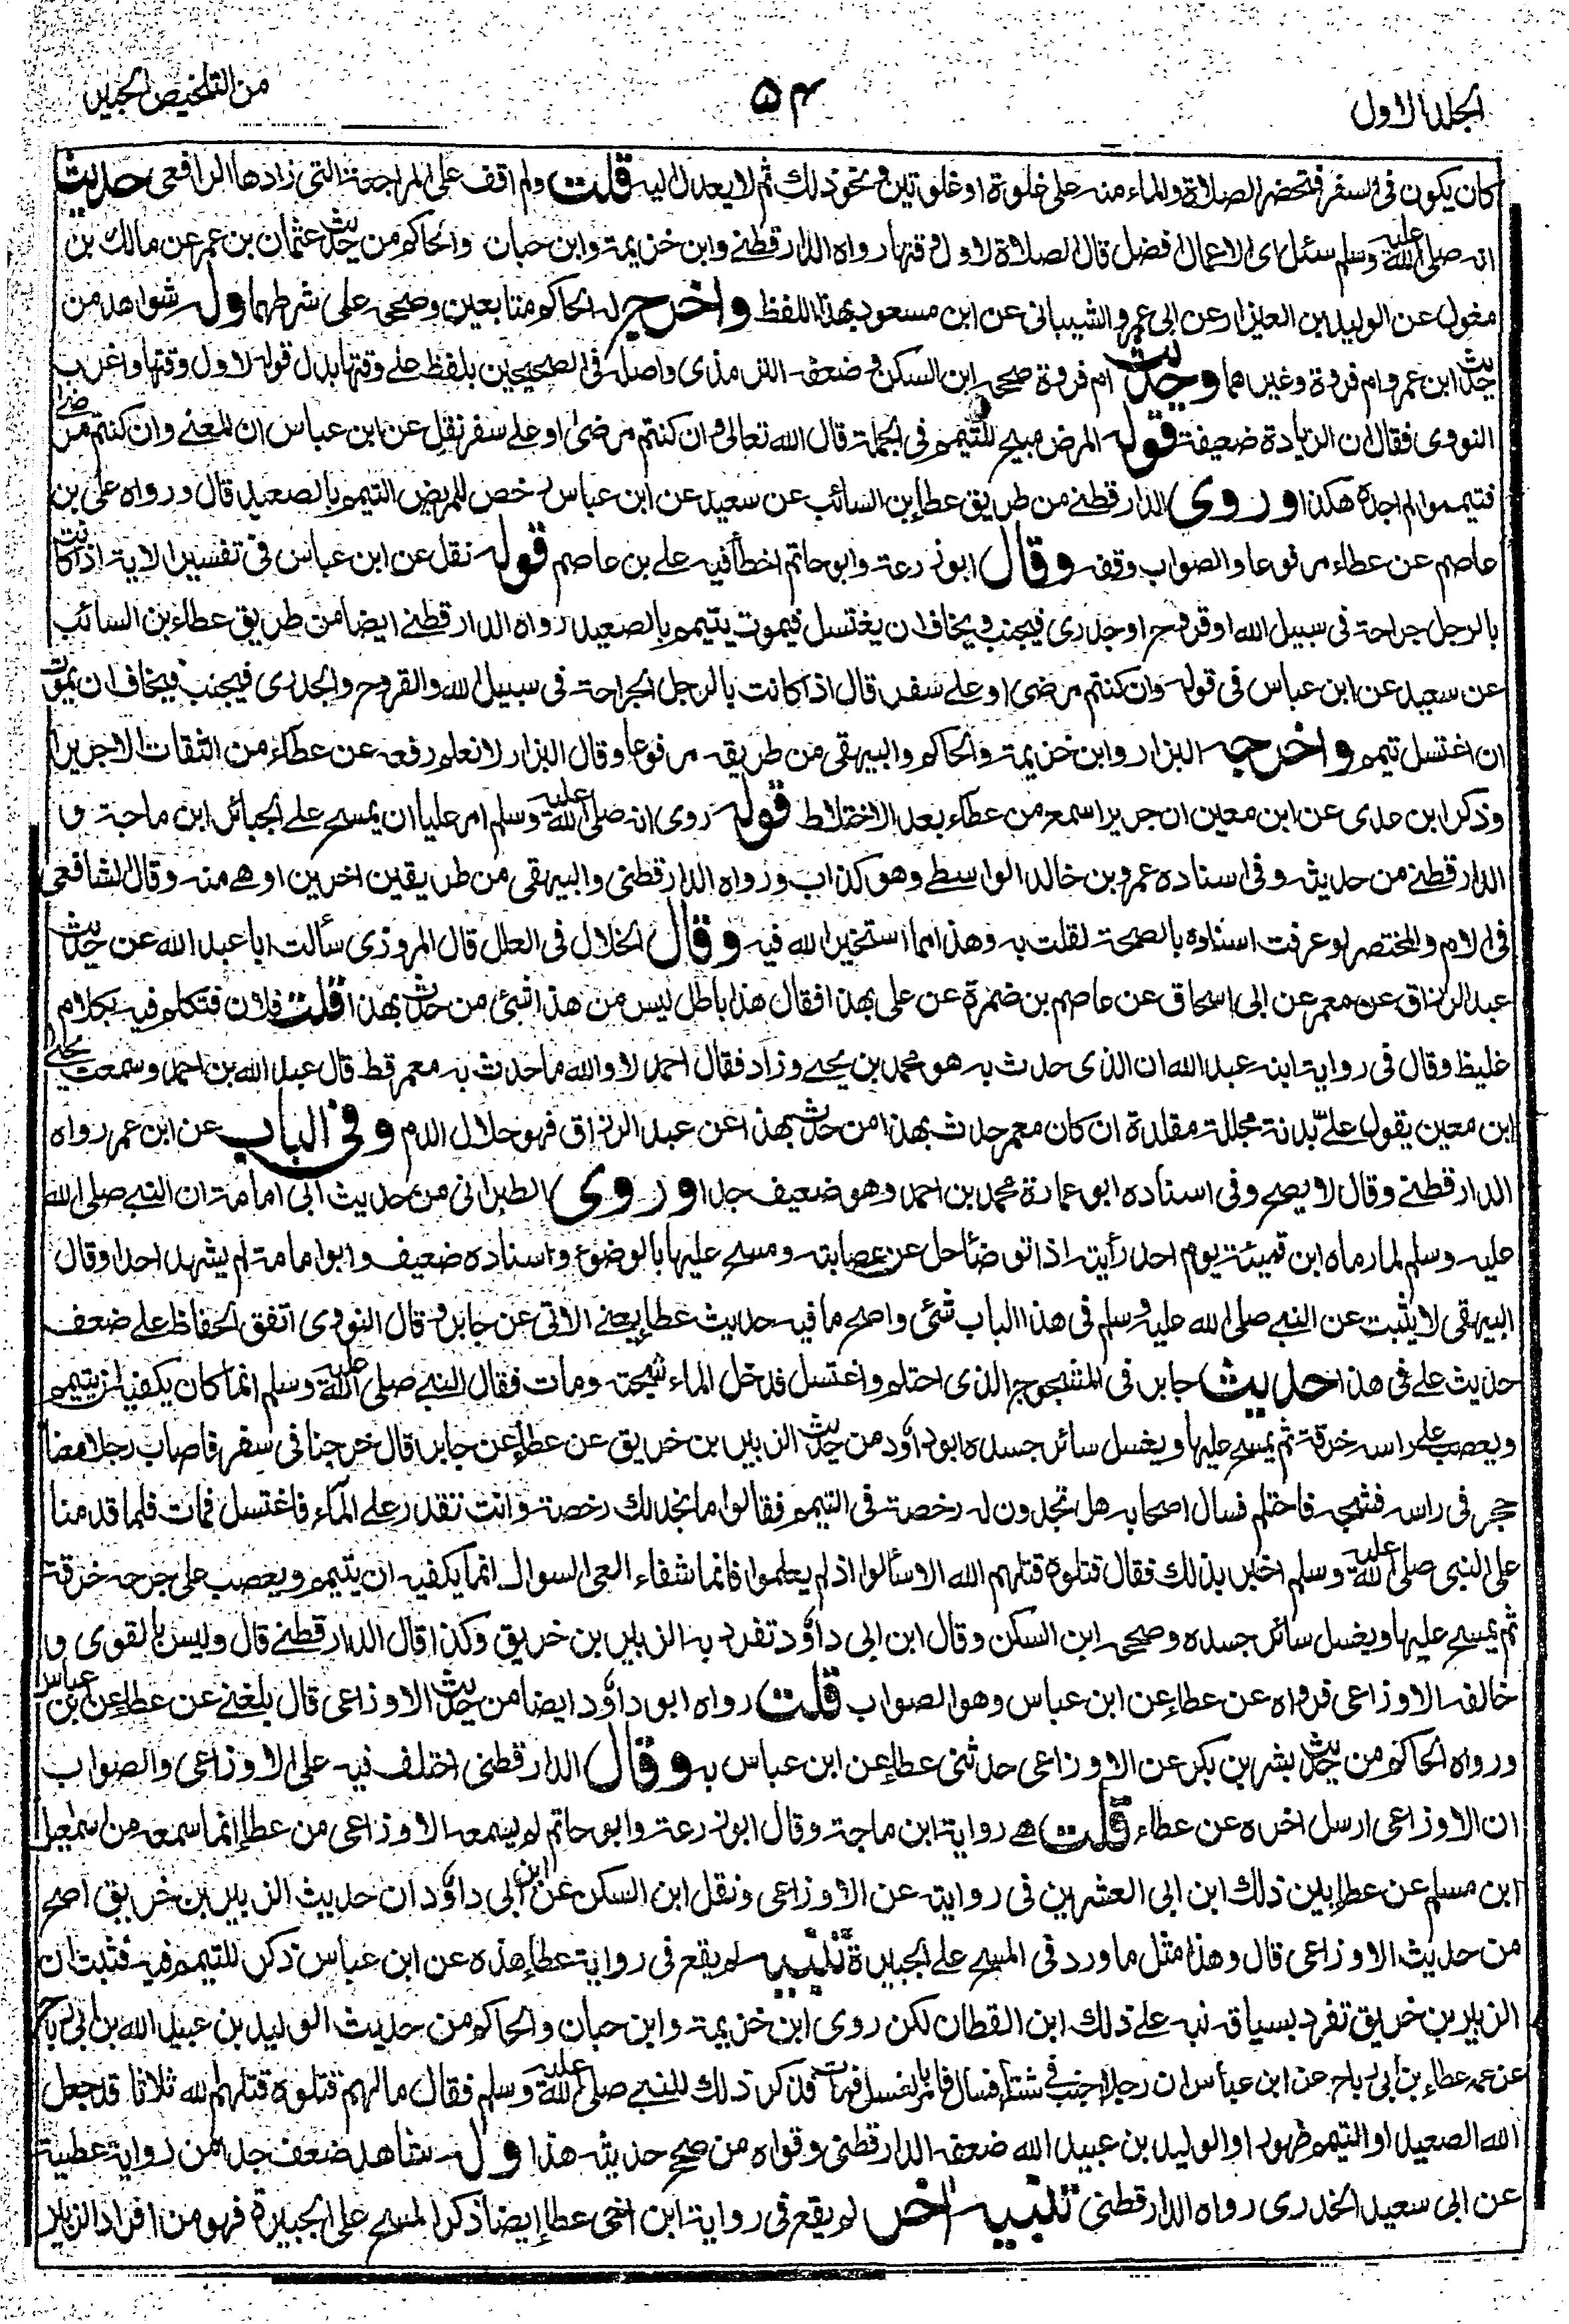 الجلد الاول
۵۴
من التلخيص الحبير
كان يكون فى السفر فتحضر الصلاة والماء منه على غلوة او غلوتين ونحو ذلك ثم لا يعدل اليه قلت ولم اقف على المراجعة التى زادها الرافعى حديث
انه صلى الله عليه وسلم سئل اى الاعمال افضل قال الصلاة لاول وقتها رواه الدارقطنے وابن خزيمة وابن حبان والحاكم من حديث عثمان بن عمر عن مالك بن
مغول عن الوليد بن العيزار عن ابى عمرو الشيبانى عن ابن مسعود بهذا اللفظ واخرج له الحاكم متابعين وصححه على شرطهما وله شواهد من
حديث ابن عمر وام فروة وغيرهما وحديث ام فروة صححه ابن السكن وضعفه الترمذى واصله فى الصحيحين بلفظ على وقتها بدل قوله لاول وقتها واغرب
النووى فقال ان الزيادة ضعيفة قوله المرض مبيح للتيمم فى الجملة قال الله تعالى وان كنتم مرضى او على سفر نقل عن ابن عباس ان المعنے وان كنتم مرضى
فتيمموا لم اجده هكذا وروى الدارقطنے من طريق عطاء بن السائب عن سعيد عن ابن عباس رخص للمريض التيمم بالصعيد قال ورواه على بن
عاصم عن عطاء مرفوعا والصواب وقفه وقال ابو زرعة وابو حاتم اخطأ فيه على بن عاصم قوله نقل عن ابن عباس فى تفسير الاية اذا كانت
بالرجل جراحة فى سبيل الله او قروح او جدرى فيجنب فيخاف ان يغتسل فيموت يتيمم بالصعيد رواه الدارقطنے ايضا من طريق عطاء بن السائب
عن سعيد عن ابن عباس فى قوله وان كنتم مرضى او على سفر قال اذا كانت بالرجل الجراحة فى سبيل الله والقروح والجدرى فيجنب فيخاف ان يموت
ان اغتسل تيمم واخرجه البزار وابن خزيمة والحاكم والبيهقى من طريقه مرفوعا وقال البزار لا نعلم رفعه عن عطاء من الثقات الا جريرا
وذكر ابن عدى عن ابن معين ان جريرا سمع من عطاء بعد الاختلاط قوله روى انه صلى الله عليه وسلم امر عليا ان يمسح على الجبائر ابن ماجة و
الدارقطنے من حديثه وفى اسناده عمرو بن خالد الواسطے وهو كذاب ورواه الدارقطنى والبيهقى من طريقين اخرين اوهے منه وقال الشافعى
فى الام والمختصر لو عرفت اسناده بالصحة لقلت به وهذا مما استخير الله فيه وقال الخلال فى العلل قال المروزى سألت ابا عبد الله عن حديث
عبد الرزاق عن معمر عن ابى اسحاق عن عاصم بن ضمرة عن على بهذا فقال هذا باطل ليس من هذا شئ من حدث بهذا قلت فلان فتكلم فيه بكلام
غليظ وقال فى رواية ابنه عبد الله ان الذى حدث به هو محمد بن يحيے وزاد فقال احمد لا والله ما حدث به معمر قط قال عبد الله بن احمد وسمعت يحيے
ابن معين يقول علىّ بدنة مجللة مقلدة ان كان معمر حدث بهذا من حدث بهذا عن عبد الرزاق فهو حلال الدم وفى الباب عن ابن عمر رواه
الدارقطنے وقال لا يصح وفى اسناده ابو عمارة محمد بن احمد وهو ضعيف جدا وروى الطبرانى من حديث ابى امامة ان النبے صلى الله
عليه وسلم لما رماه ابن قميئة يوم احد رأيته اذا توضأ حل عن عصابته ومسح عليها بالوضوء واسناده ضعيف وابو امامة لم يشهد احدا وقال
البيهقى لا يثبت عن النبے صلى الله عليه وسلم فى هذا الباب شئى واصح ما فيه حديث عطاء يعنے الاتى عن جابر وقال النووى اتفق الحفاظ على ضعف
حديث على فى هذا حديث جابر فى المشجوج الذى احتلم واغتسل فدخل الماء شجته ومات فقال النبے صلى الله عليه وسلم انما كان يكفيه ان يتيمم
ويعصب على راسه خرقة ثم يمسح عليها ويغسل سائر جسده ابو داؤد من حديث الزبير بن خريق عن عطاء عن جابر قال خرجنا فى سفر فاصاب رجلا معنا
حجر فى راسه فشجه فاحتلم فسال اصحابه هل تجدون له رخصة فى التيمم فقالوا ما نجد لك رخصة وانت تقدر على المآء فاغتسل فمات فلما قدمنا
على النبى صلى الله عليه وسلم اخبر بذلك فقال قتلوه قتلهم الله الا سألوا اذ لم يعلموا فانما شفاء العى السوال انما يكفيه ان يتيمم ويعصب على جرحه خرقة
ثم يمسح عليها ويغسل سائر جسده وصححه ابن السكن وقال ابن ابى داؤد تفرد به الزبير بن خريق وكذا قال الدارقطنے قال وليس بالقوى و
خالفه الاوزاعى فرواه عن عطاء عن ابن عباس وهو الصواب قلت رواه ابو داؤد ايضا من حديث الاوزاعى قال بلغنے عن عطاء عن ابن عباس
ورواه الحاكم من حديث بشر بن بكر عن الاوزاعى حدثنى عطاء عن ابن عباس به وقال الدارقطنى اختلف فيه على الاوزاعى والصواب
ان الاوزاعى ارسل اخره عن عطاء قلت هے رواية ابن ماجة وقال ابو زرعة وابو حاتم لم يسمعه الاوزاعى من عطاء انما سمعه من اسمعيل
ابن مسلم عن عطاء بين ذلك ابن ابى العشرين فى رواية عن الاوزاعى ونقل ابن السكن عن ابن ابى داؤد ان حديث الزبير بن خريق اصح
من حديث الاوزاعى قال وهذا مثل ما ورد فى المسح على الجبيرة تنبيه لم يقع فى رواية عطاء هذه عن ابن عباس ذكر للتيمم فيه فثبت ان
الزبير بن خريق تفرد بسياقه نبه على ذلك ابن القطان لكن روى ابن خزيمة وابن حبان والحاكم من حديث الوليد بن عبيد الله بن ابى رباح
عن عمه عطاء بن ابى رباح عن ابن عباس ان رجلا اجنب فى شتاء فسال فامر بالغسل فمات فذكر ذلك للنبے صلى الله عليه وسلم فقال مالهم قتلوه قتلهم الله ثلاثا قد جعل
الله الصعيد او التيمم طهورا والوليد بن عبيد الله ضعفه الدارقطنى وقواه من صحح حديثه هذا وله شاهد ضعف جدا من رواية عطية
عن ابى سعيد الخدرى رواه الدارقطنى تنبيه اخر لم يقع فى رواية ابن اخى عطاء ايضا ذكر المسح على الجبيرة فهو من افراد الزبير